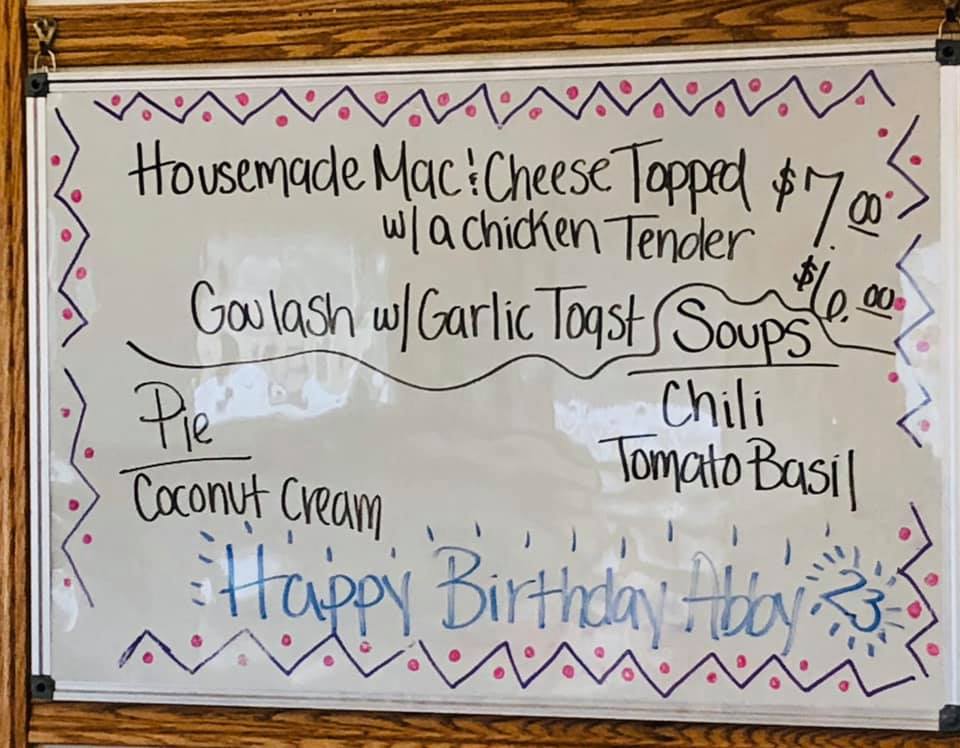 Housemade Mac & Cheese Topped $7.00
w/ a chicken Tender
Goulash w/ Garlic Toast $6.00
Soups
Chili
Tomato Basil
Pie
Coconut Cream
Happy Birthday Abby 23